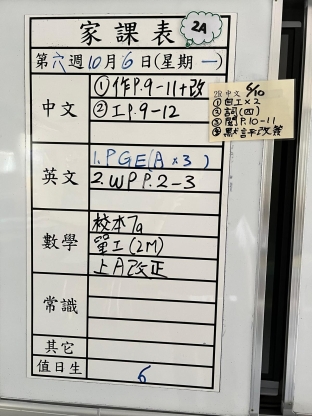 家課表
2A
第六週10月6日(星期一)
中文
①作P.9-11+改
②工P.9-12
2B 中文 6/10
①自工×2
②詞(四)
③閱P.10-11
④默評改簽
英文
1. PGE(A×3)
2. WP P.2-3
數學
校本7a
單工(2M)
上A改正
常識
其它
值日生
6